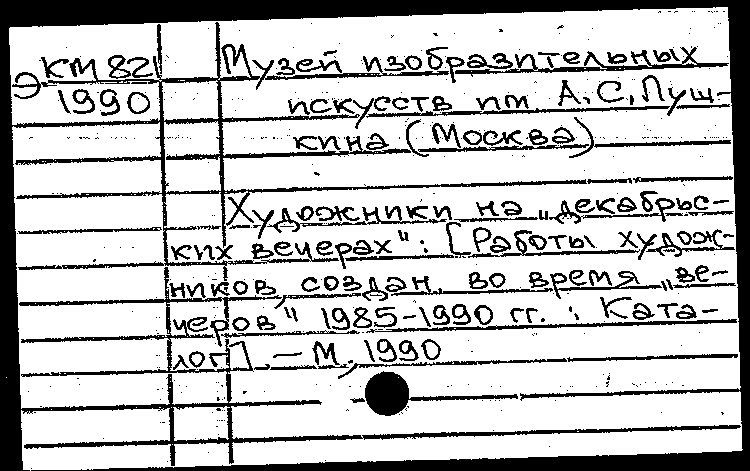 Э КМ 821
1990
Музей изобразительных
искусств им. А.С. Пуш-
кина (Москва)
Художники на „декабрьс-
ких вечерах": [Работы худож-
ников, создан. во время „ве-
черов" 1985-1990 гг. : Ката-
лог]. — М, 1990